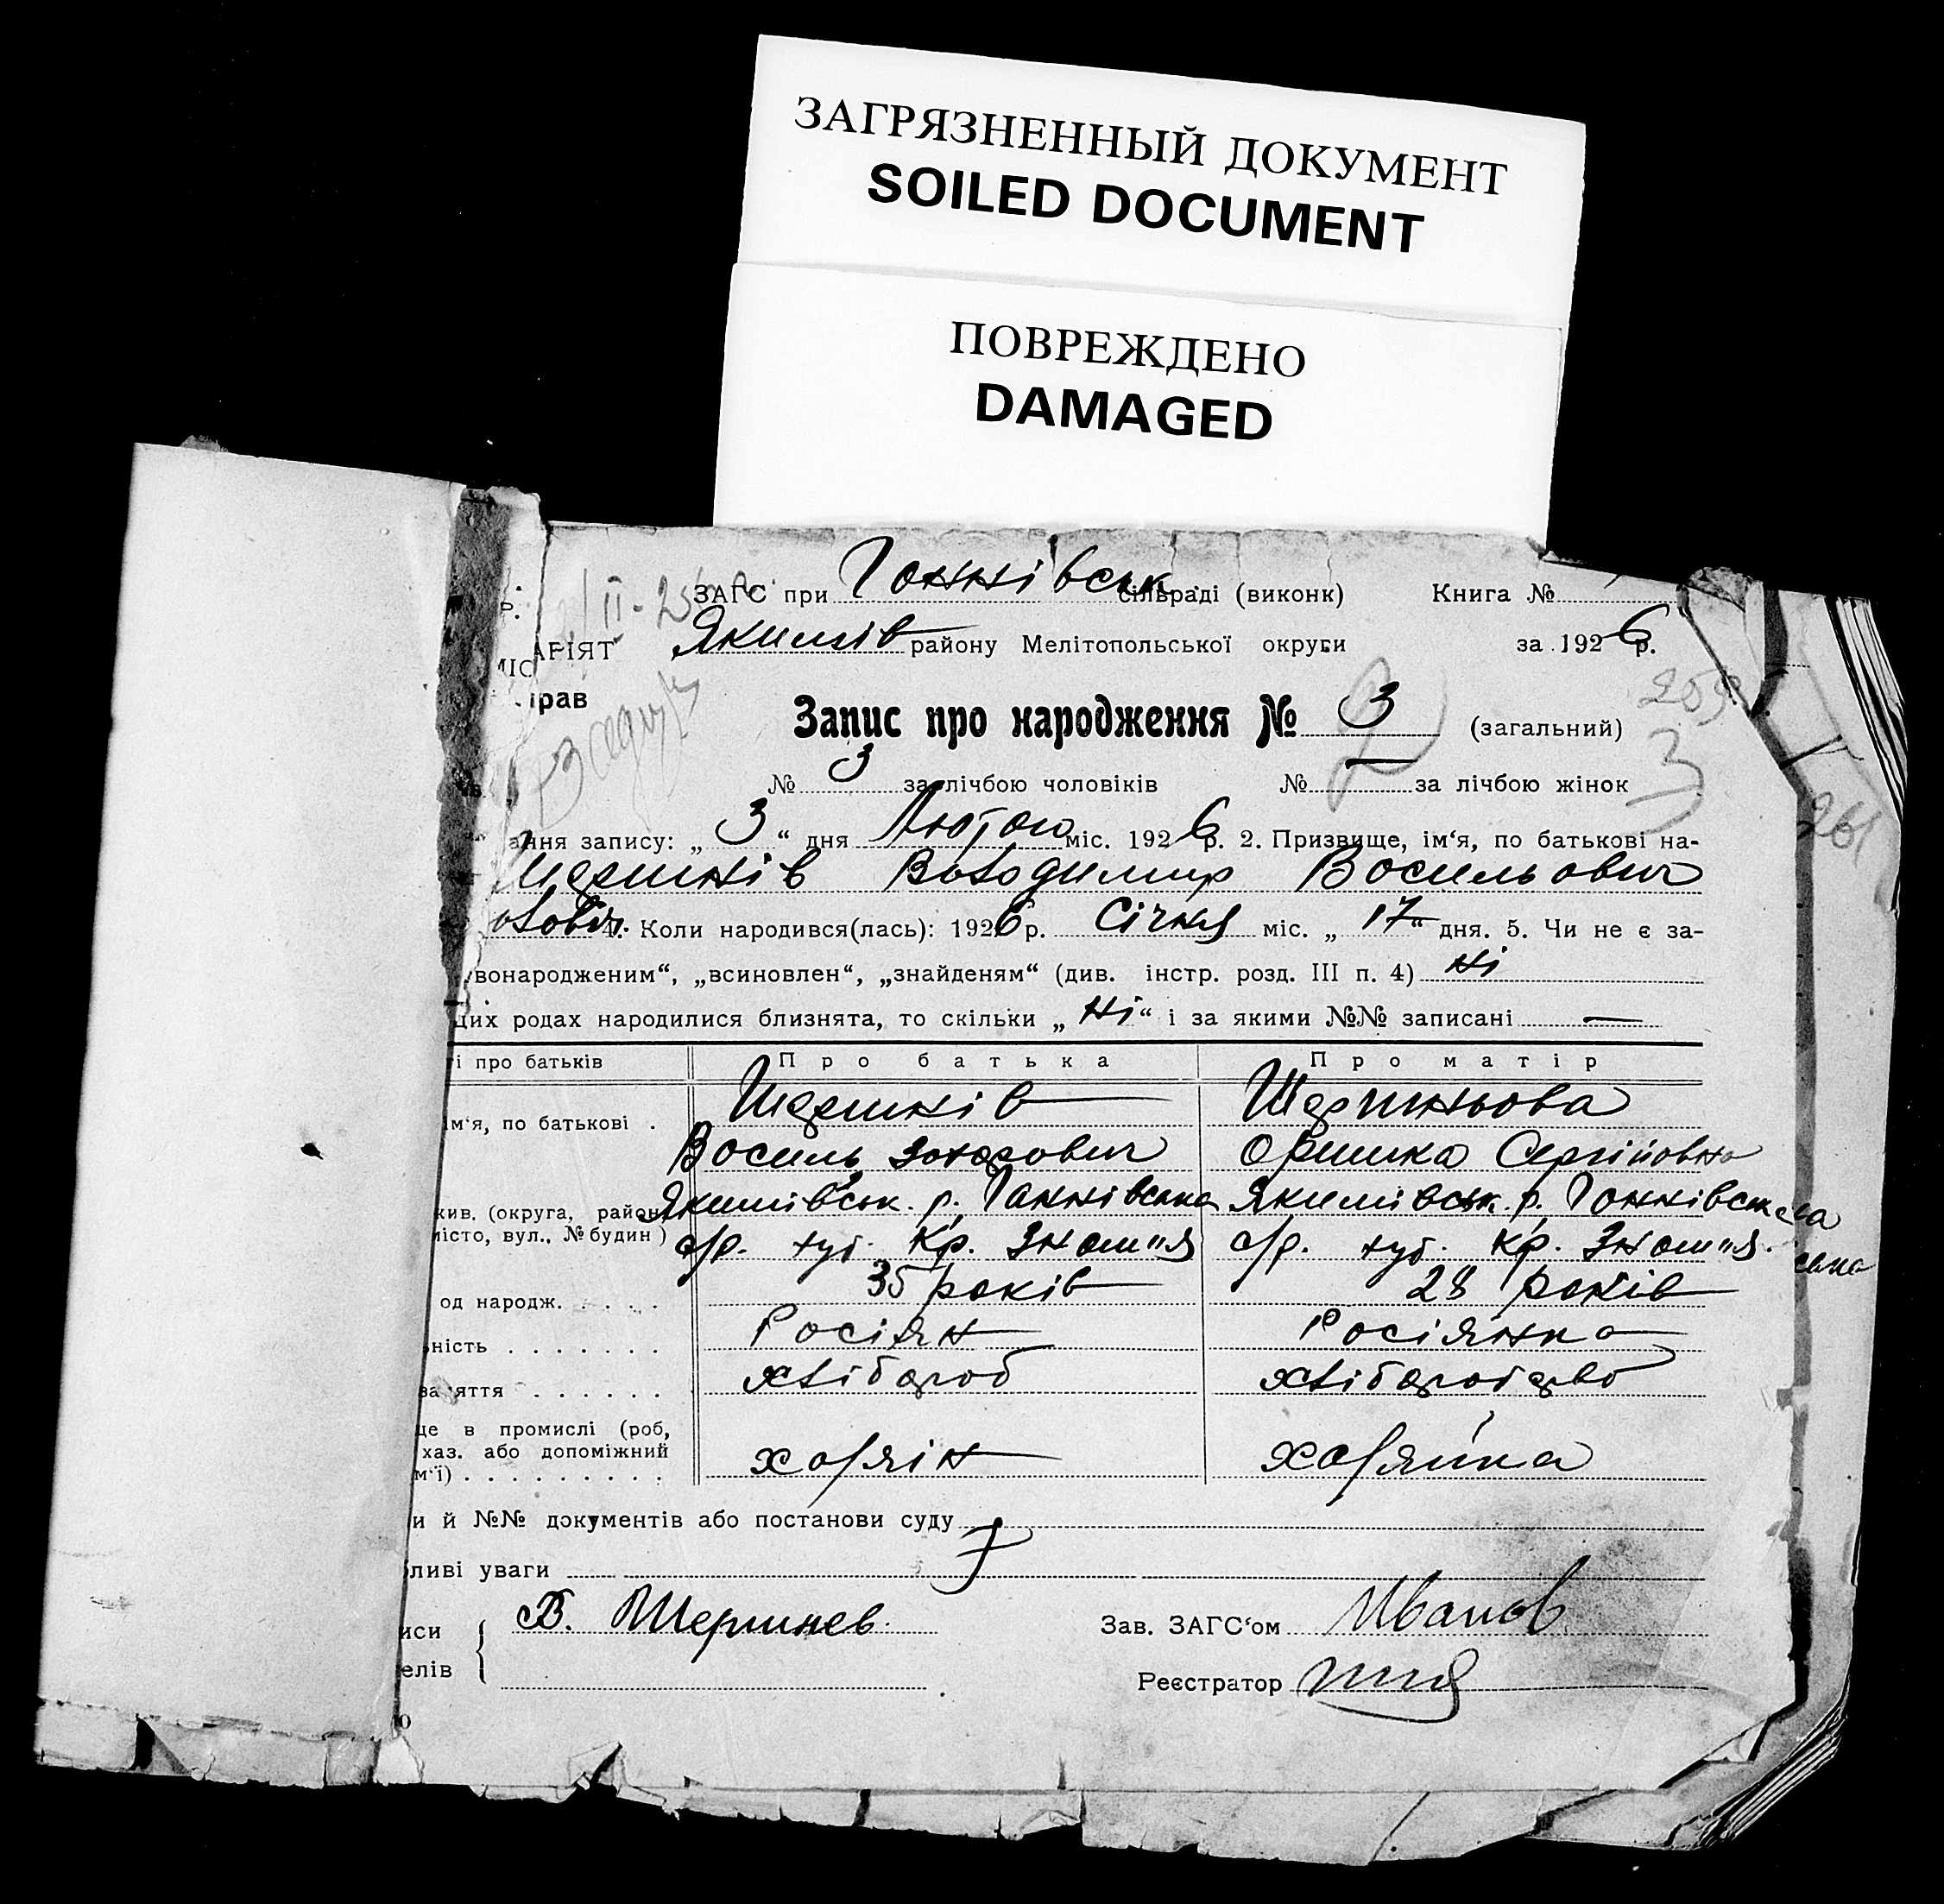 ЗАГРЯЗНЕННЫЙ ДОКУМЕНТ
SOILED DOCUMENT
ПОВРЕЖДЕНО
DAMAGED
ЗАГС при Ганнівськ. сільраді (виконк) Книга №
Якимів району Мелітопольської округи за 1926 р.
АРІЯТ
прав
Запис про народження № 3 (загальний)
№ 3 за лічбою чоловіків № — за лічбою жінок 3
261
ання запису: „3“ дня Лютого міс. 1926 р. 2. Призвище, ім‘я, по батькові на-
Володимир Васильович
4. Коли народився(лась): 1926 р. Січня міс. „17“ дня. 5. Чи не є за-
вонародженим“, „всиновлен“, „знайденям“ (див. інстр. розд. III п. 4) ні
цих родах народилися близнята, то скільки „Ні“ і за якими №№ записані —
і про батьків Про батька Про матір
ім‘я, по батькові .
Василь Захарович Оришка Сергіївна
жив. (округа, район Якимівськ. р. Ганнівська Якимівськ. р. Ганнівська
місто, вул., № будин) с/р. хут. Кр. Знам"я с/р. хут. Кр. Знам"я.
од народж. . . . . 35 років 28 років
ність . . . . . . . Росіян Росіянка
заняття . . . . . . хлібороб хліборобство
це в промислі (роб,
хаз. або допоміжний
м‘ї) . . . . . . . . . хазяїн хазяйка
и й №№ документів або постанови суду
ливі уваги
иси В. Зав. ЗАГС‘ом Иванов
елів Реєстратор